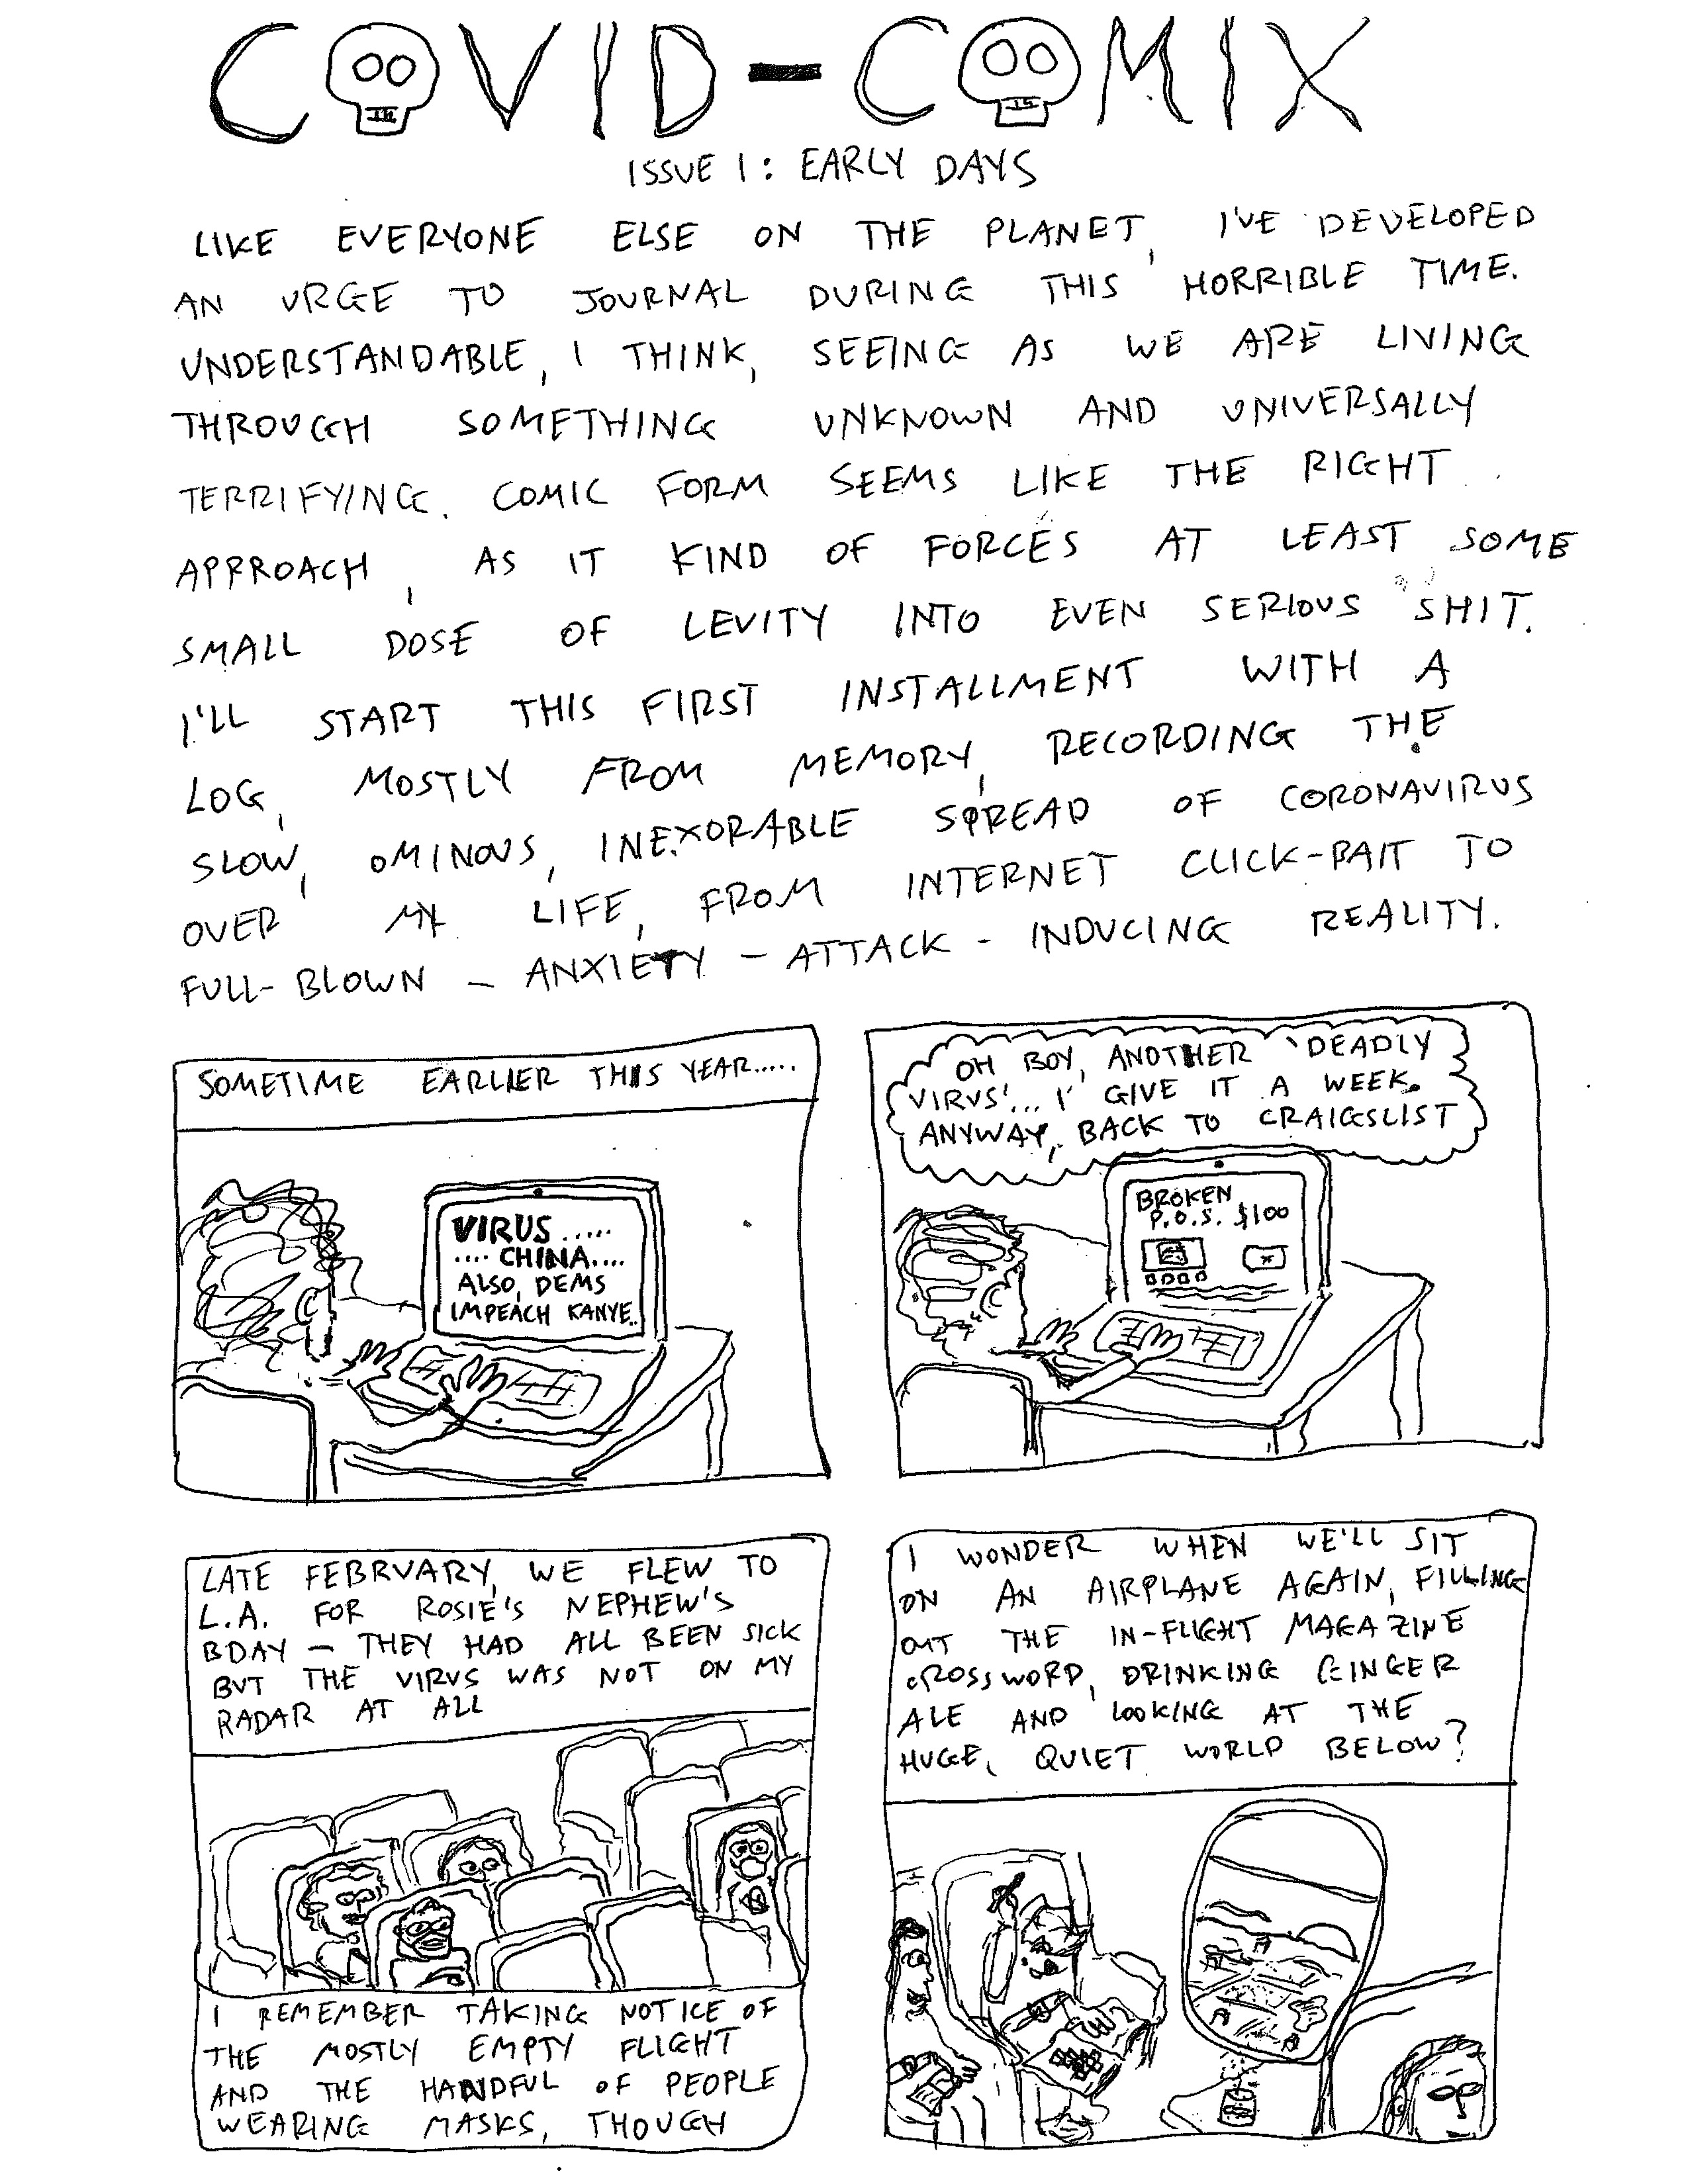 COVID-COMIX
ISSUE 1: EARLY DAYS
LIKE EVERYONE ELSE ON THE PLANET, I'VE DEVELOPED
AN URGE TO JOURNAL DURING THIS HORRIBLE TIME.
UNDERSTANDABLE, I THINK, SEEING AS WE ARE LIVING
THROUGH SOMETHING UNKNOWN AND UNIVERSALLY
TERRIFYING. COMIC FORM SEEMS LIKE THE RIGHT
APPROACH, AS IT KIND OF FORCES AT LEAST SOME
SMALL DOSE OF LEVITY INTO EVEN SERIOUS SHIT.
I'LL START THIS FIRST INSTALLMENT WITH A
LOG, MOSTLY FROM MEMORY, RECORDING THE
SLOW, OMINOUS, INEXORABLE SPREAD OF CORONAVIRUS
OVER MY LIFE, FROM INTERNET CLICK-BAIT TO
FULL-BLOWN-ANXIETY-ATTACK-INDUCING REALITY.
SOMETIME EARLIER THIS YEAR.....
VIRUS.....
....CHINA....
ALSO, DEMS
IMPEACH KANYE..
OH BOY, ANOTHER 'DEADLY
VIRUS'... I GIVE IT A WEEK.
ANYWAY, BACK TO CRAIGSLIST
BROKEN
P.O.S. $100
LATE FEBRUARY, WE FLEW TO
L.A. FOR ROSIE'S NEPHEW'S
BDAY – THEY HAD ALL BEEN SICK
BUT THE VIRUS WAS NOT ON MY
RADAR AT ALL
I REMEMBER TAKING NOTICE OF
THE MOSTLY EMPTY FLIGHT
AND THE HANDFUL OF PEOPLE
WEARING MASKS, THOUGH
I WONDER WHEN WE'LL SIT
ON AN AIRPLANE AGAIN, FILLING
OUT THE IN-FLIGHT MAGAZINE
CROSSWORD, DRINKING GINGER
ALE AND LOOKING AT THE
HUGE, QUIET WORLD BELOW?